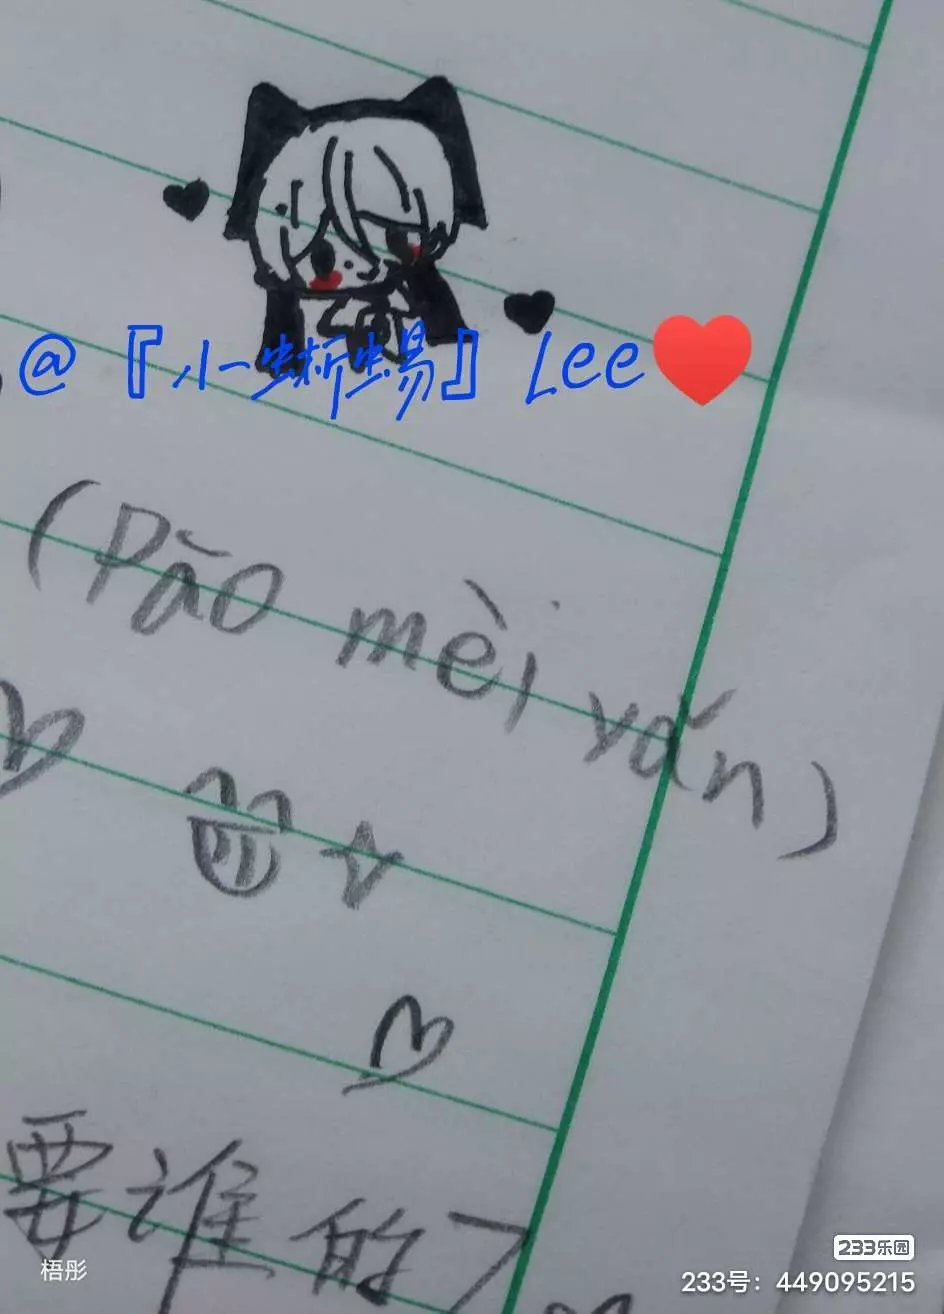 @『小蜥蜴』Lee❤
(Pāo mèi vǎn)
要谁的
梧彤
233乐园
233号：449095215